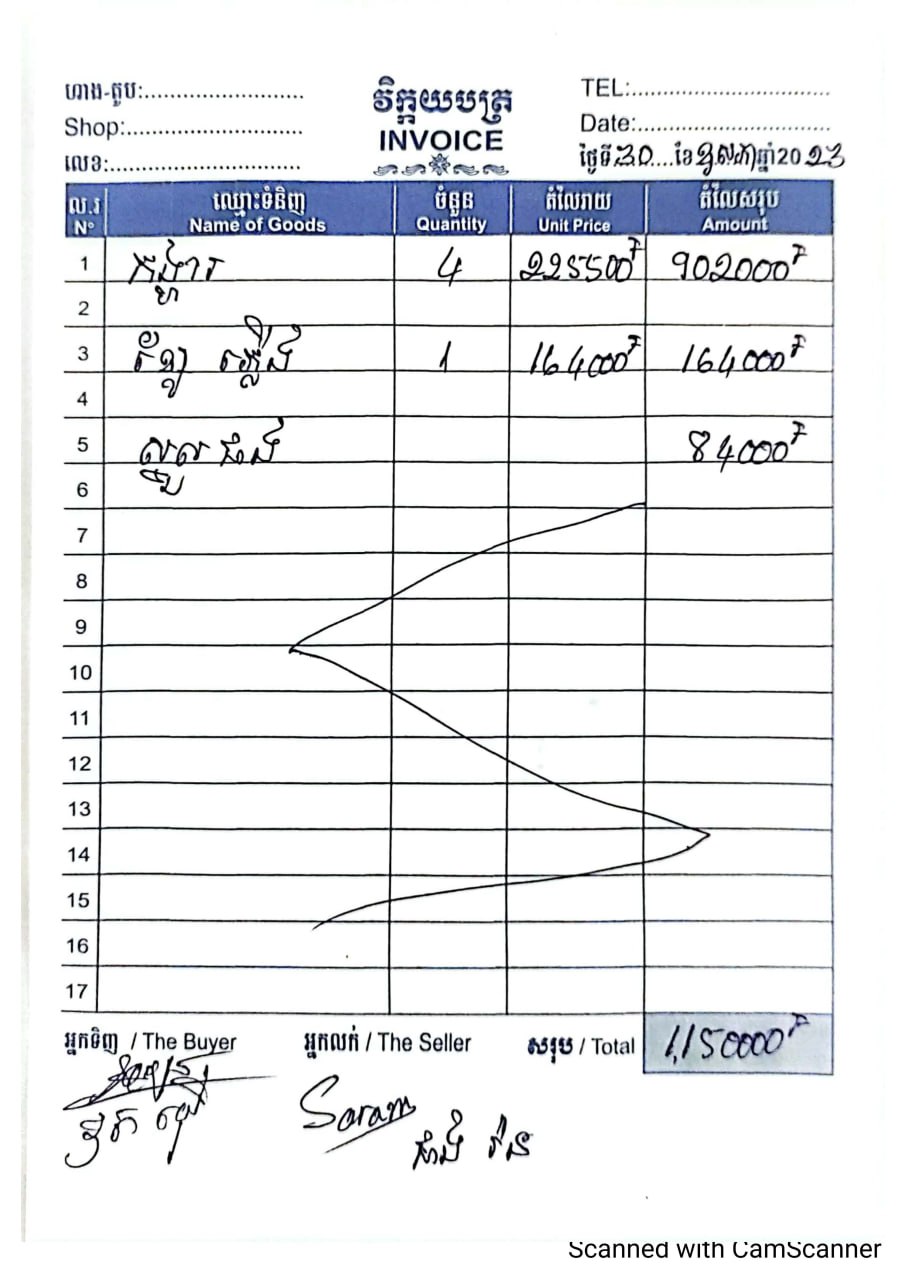 ហាង-តូប:......................... វិក្កយបត្រ TEL:...............................
Shop:............................ INVOICE Date:..............................
លេខ:.............................. ថ្ងៃទី.30....ខែ.តុលា.ឆ្នាំ2023
ល.រ ឈ្មោះទំនិញ ចំនួន តំលៃរាយ តំលៃសរុប
Nº Name of Goods Quantity Unit Price Amount
1 កង្ហារ 4 225500៛ 902000៛
2
3 ខ្សែភ្លើង 1 164000៛ 164000៛
4
5 ឈ្នួលជាង 84000៛
6
7
8
9
10
11
12
13
14
15
16
17
អ្នកទិញ / The Buyer អ្នកលក់ / The Seller សរុប / Total 1,150000៛
Saram
ជាង វ៉ន
Scanned with CamScanner